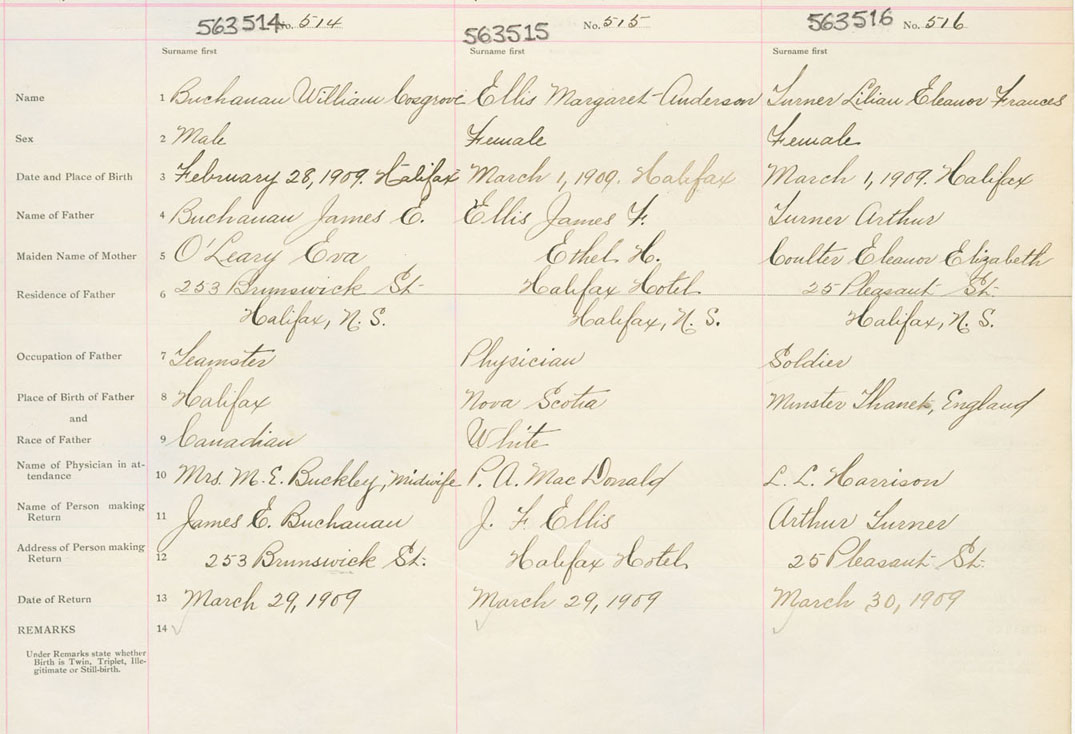 563514 No. 514 563515 No. 515 563516 No. 516
Surname first Surname first Surname first
Name 1 Buchanan William Cosgrove Ellis Margaret Anderson Turner Lilian Eleanor Frances
Sex 2 Male Female Female
Date and Place of Birth 3 February 28, 1909. Halifax March 1, 1909. Halifax March 1, 1909. Halifax
Name of Father 4 Buchanan James E. Ellis James F. Turner Arthur
Maiden Name of Mother 5 O'Leary Eva Ethel H. Coulter Eleanor Elizabeth
Residence of Father 6 253 Brunswick St. Halifax Hotel 25 Pleasant St.
Halifax, N. S. Halifax, N. S. Halifax, N. S.
Occupation of Father 7 Teamster Physician Soldier
Place of Birth of Father 8 Halifax Nova Scotia Minster Thanet, England
and
Race of Father 9 Canadian White
Name of Physician in at-
tendance 10 Mrs. M. E. Buckley, Midwife P. A. MacDonald L. L. Harrison
Name of Person making
Return 11 James E. Buchanan J. F. Ellis Arthur Turner
Address of Person making
Return 12 253 Brunswick St. Halifax Hotel 25 Pleasant St.
Date of Return 13 March 29, 1909 March 29, 1909 March 30, 1909
REMARKS 14
Under Remarks state whether
Birth is Twin, Triplet, Ille-
gitimate or Still-birth.